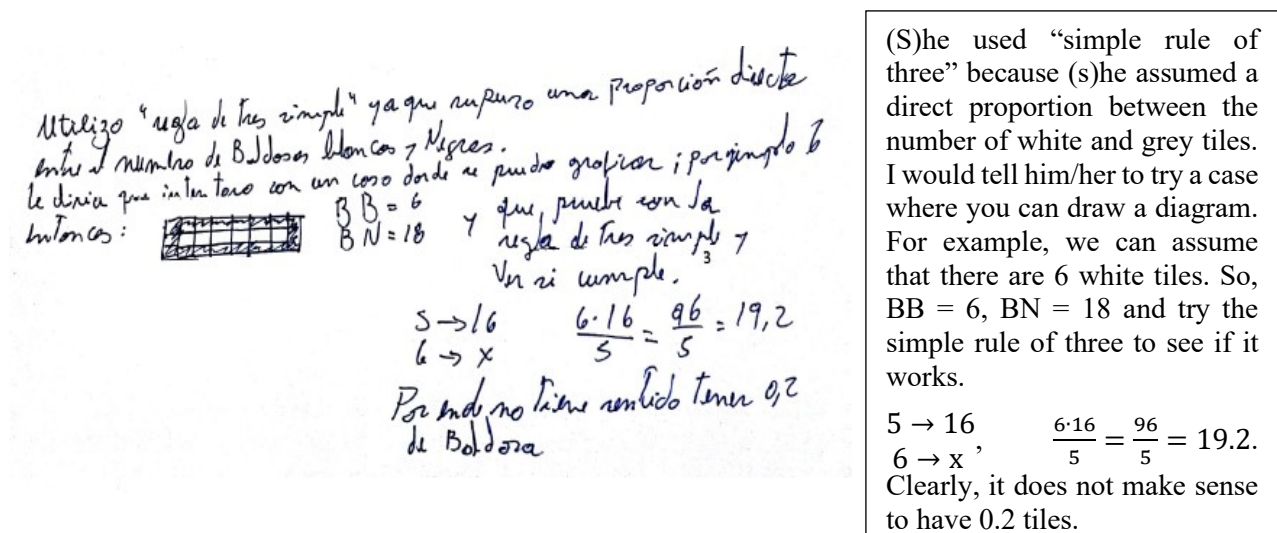 Utilizo "regla de tres simple" ya que supuso una proporción directa
entre el número de Baldosas blancas y Negras.
le diria que intentara con un caso donde se pueda graficar ; por ejemplo 6
entonces:
BB = 6
BN = 18
y que, pruebe con la
regla de tres simple y
3
Ver si cumple.
5 → 16
6 → x
6·16/5 = 96/5 = 19,2
Por ende no tiene sentido tener 0,2
de Baldosa
(S)he used “simple rule of
three” because (s)he assumed a
direct proportion between the
number of white and grey tiles.
I would tell him/her to try a case
where you can draw a diagram.
For example, we can assume
that there are 6 white tiles. So,
BB = 6, BN = 18 and try the
simple rule of three to see if it
works.
5 → 16
6 → x ,
6·16/5 = 96/5 = 19.2.
Clearly, it does not make sense
to have 0.2 tiles.